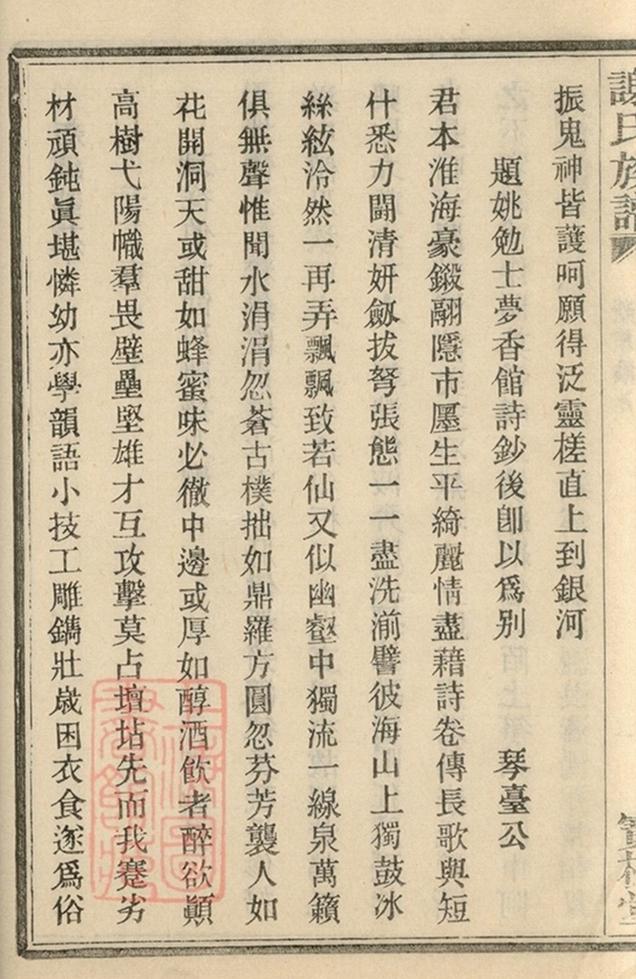 謝氏族譜
振鬼神皆護呵願得泛靈槎直上到銀河
題姚勉士夢香館詩鈔後卽以爲别 琴臺公
君本淮海豪鍛翮隱市廛生平綺麗情盡藉詩卷傳長歌與短
什悉力鬭清妍劒拔弩張態一一盡洗湔譬彼海山上獨鼓冰
絲絃泠然一再弄飄飄致若仙又似幽壑中獨流一線泉萬籟
俱無聲惟聞水涓涓忽蒼古樸拙如鼎羅方圓忽芬芳襲人如
花開洞天或甜如蜂蜜味必徹中邊或厚如醇酒飲者醉欲顚
高樹弋陽幟羣畏壁壘堅雄才互攻擊莫占壇坫先而我蹇劣
材頑鈍眞堪憐幼亦學韻語小技工雕鐫壯歲困衣食遂爲俗